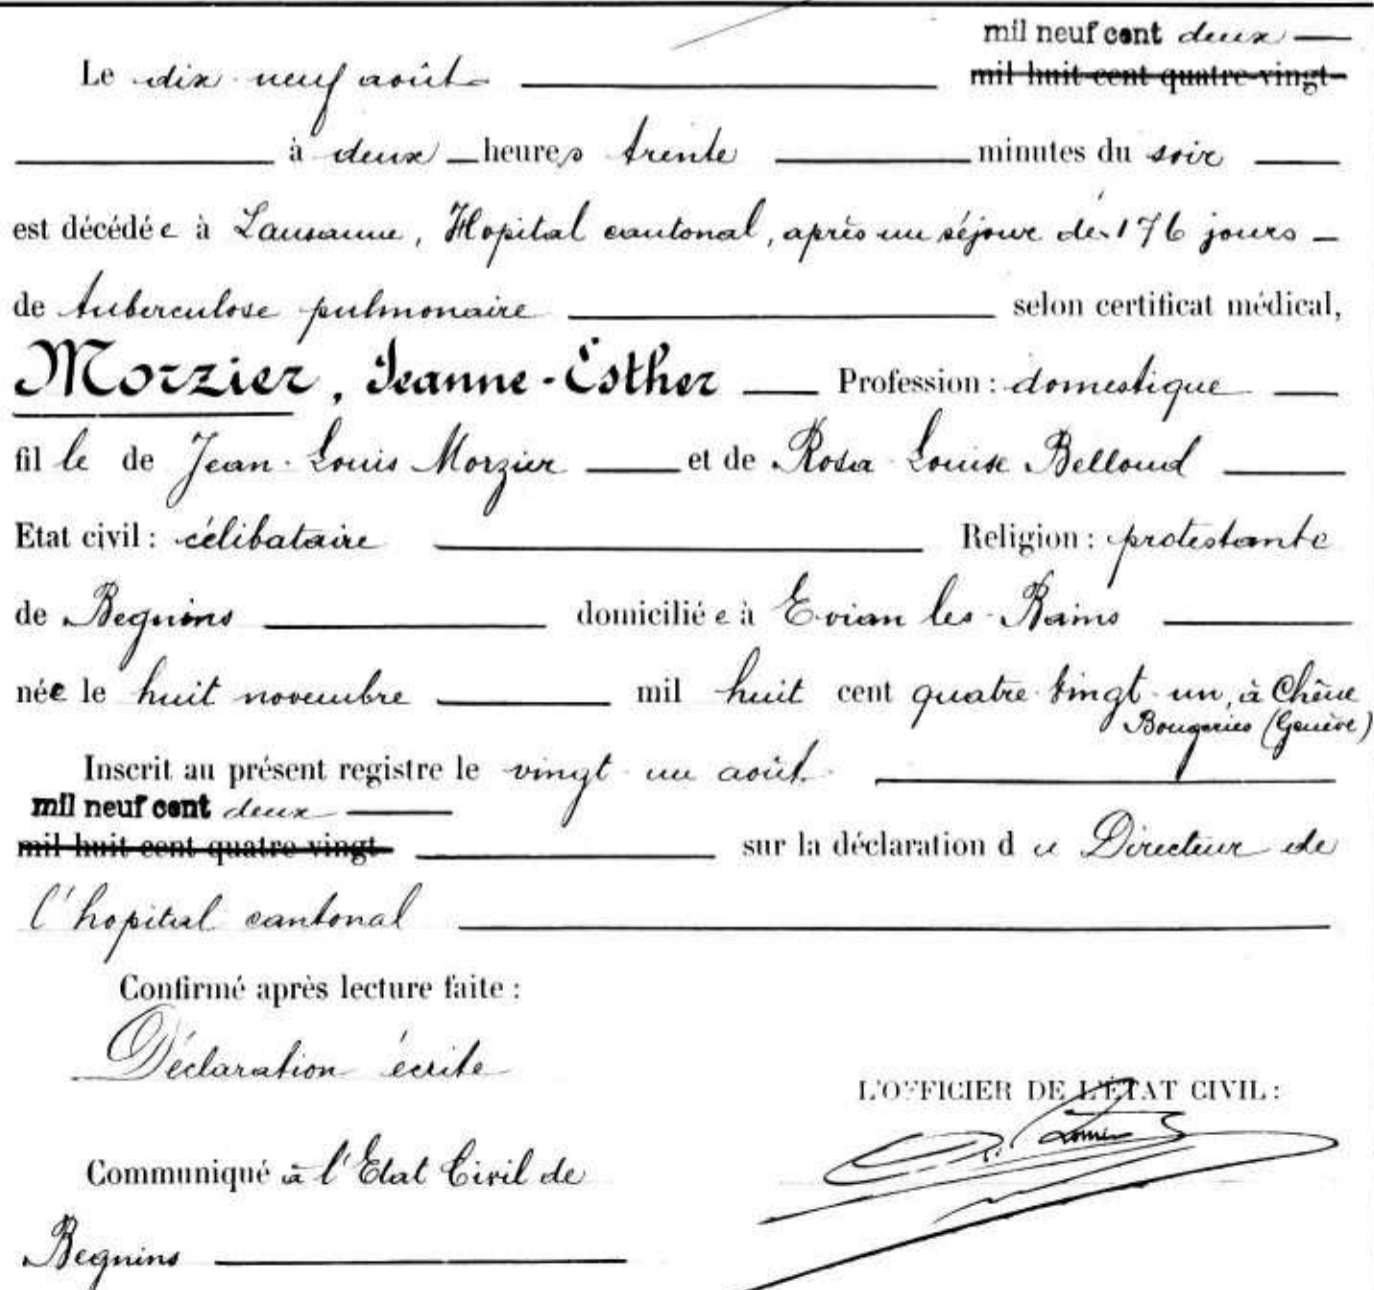 mil neuf cent deux
Le dix-neuf août mil huit cent quatre-vingt
à deux heures trente minutes du soir
est décédée à Lausanne, Hopital cantonal, après un séjour de 176 jours
de tuberculose pulmonaire selon certificat médical,
Morzier, Jeanne-Esther Profession : domestique
fille de Jean-Louis Morzier et de Rosa-Louise Belloud
Etat civil : célibataire Religion : protestante
de Begnins domiciliée à Evian les-Bains
née le huit novembre mil huit cent quatre-vingt-un, à Chêne
Bougeries (Genève)
Inscrit au présent registre le vingt-un août
mil neuf cent deux
mil huit cent quatre-vingt sur la déclaration du Directeur de
l'hopital cantonal
Confirmé après lecture faite :
Déclaration écrite
L'OFFICIER DE L'ÉTAT CIVIL :
Communiqué à l'Etat Civil de
Begnins